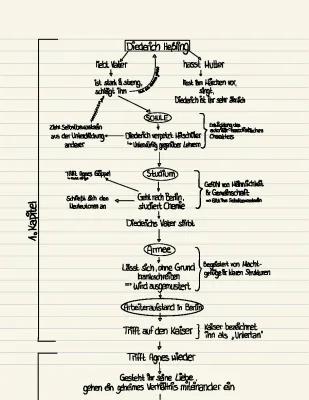 Diederich Heßling
liebt Vater
hasst Mutter
ist stark & streng,
schlägt ihn
liest ihm Märchen vor,
singt,
Diederich ist ihr sehr ähnlich
SCHULE
Zieht Selbstbewusstsein
aus der Unterdrückung
anderer
Diederich verpetzt Mitschüler
Unterwürfig gegenüber Lehrern
Entwicklung des
Charakters
Studium
Trifft Agnes Göppel
Schließt sich den
Neuteutonen an
Geht nach Berlin,
studiert Chemie
Gefühl von Männlichkeit
& Gemeinschaft
Diederichs Vater stirbt
Armee
Lässt sich, ohne Grund
krankschreiben
⇒ Wird ausgemustert
Begeistert von Macht-
gefüge & klaren Strukturen
Arbeiteraufstand in Berlin
Trifft auf den Kaiser
Kaiser bezeichnet
ihn als „Untertan"
1. Kapitel
Trifft Agnes wieder
Gesteht ihr seine Liebe,
gehen ein geheimes Verhältnis miteinander ein